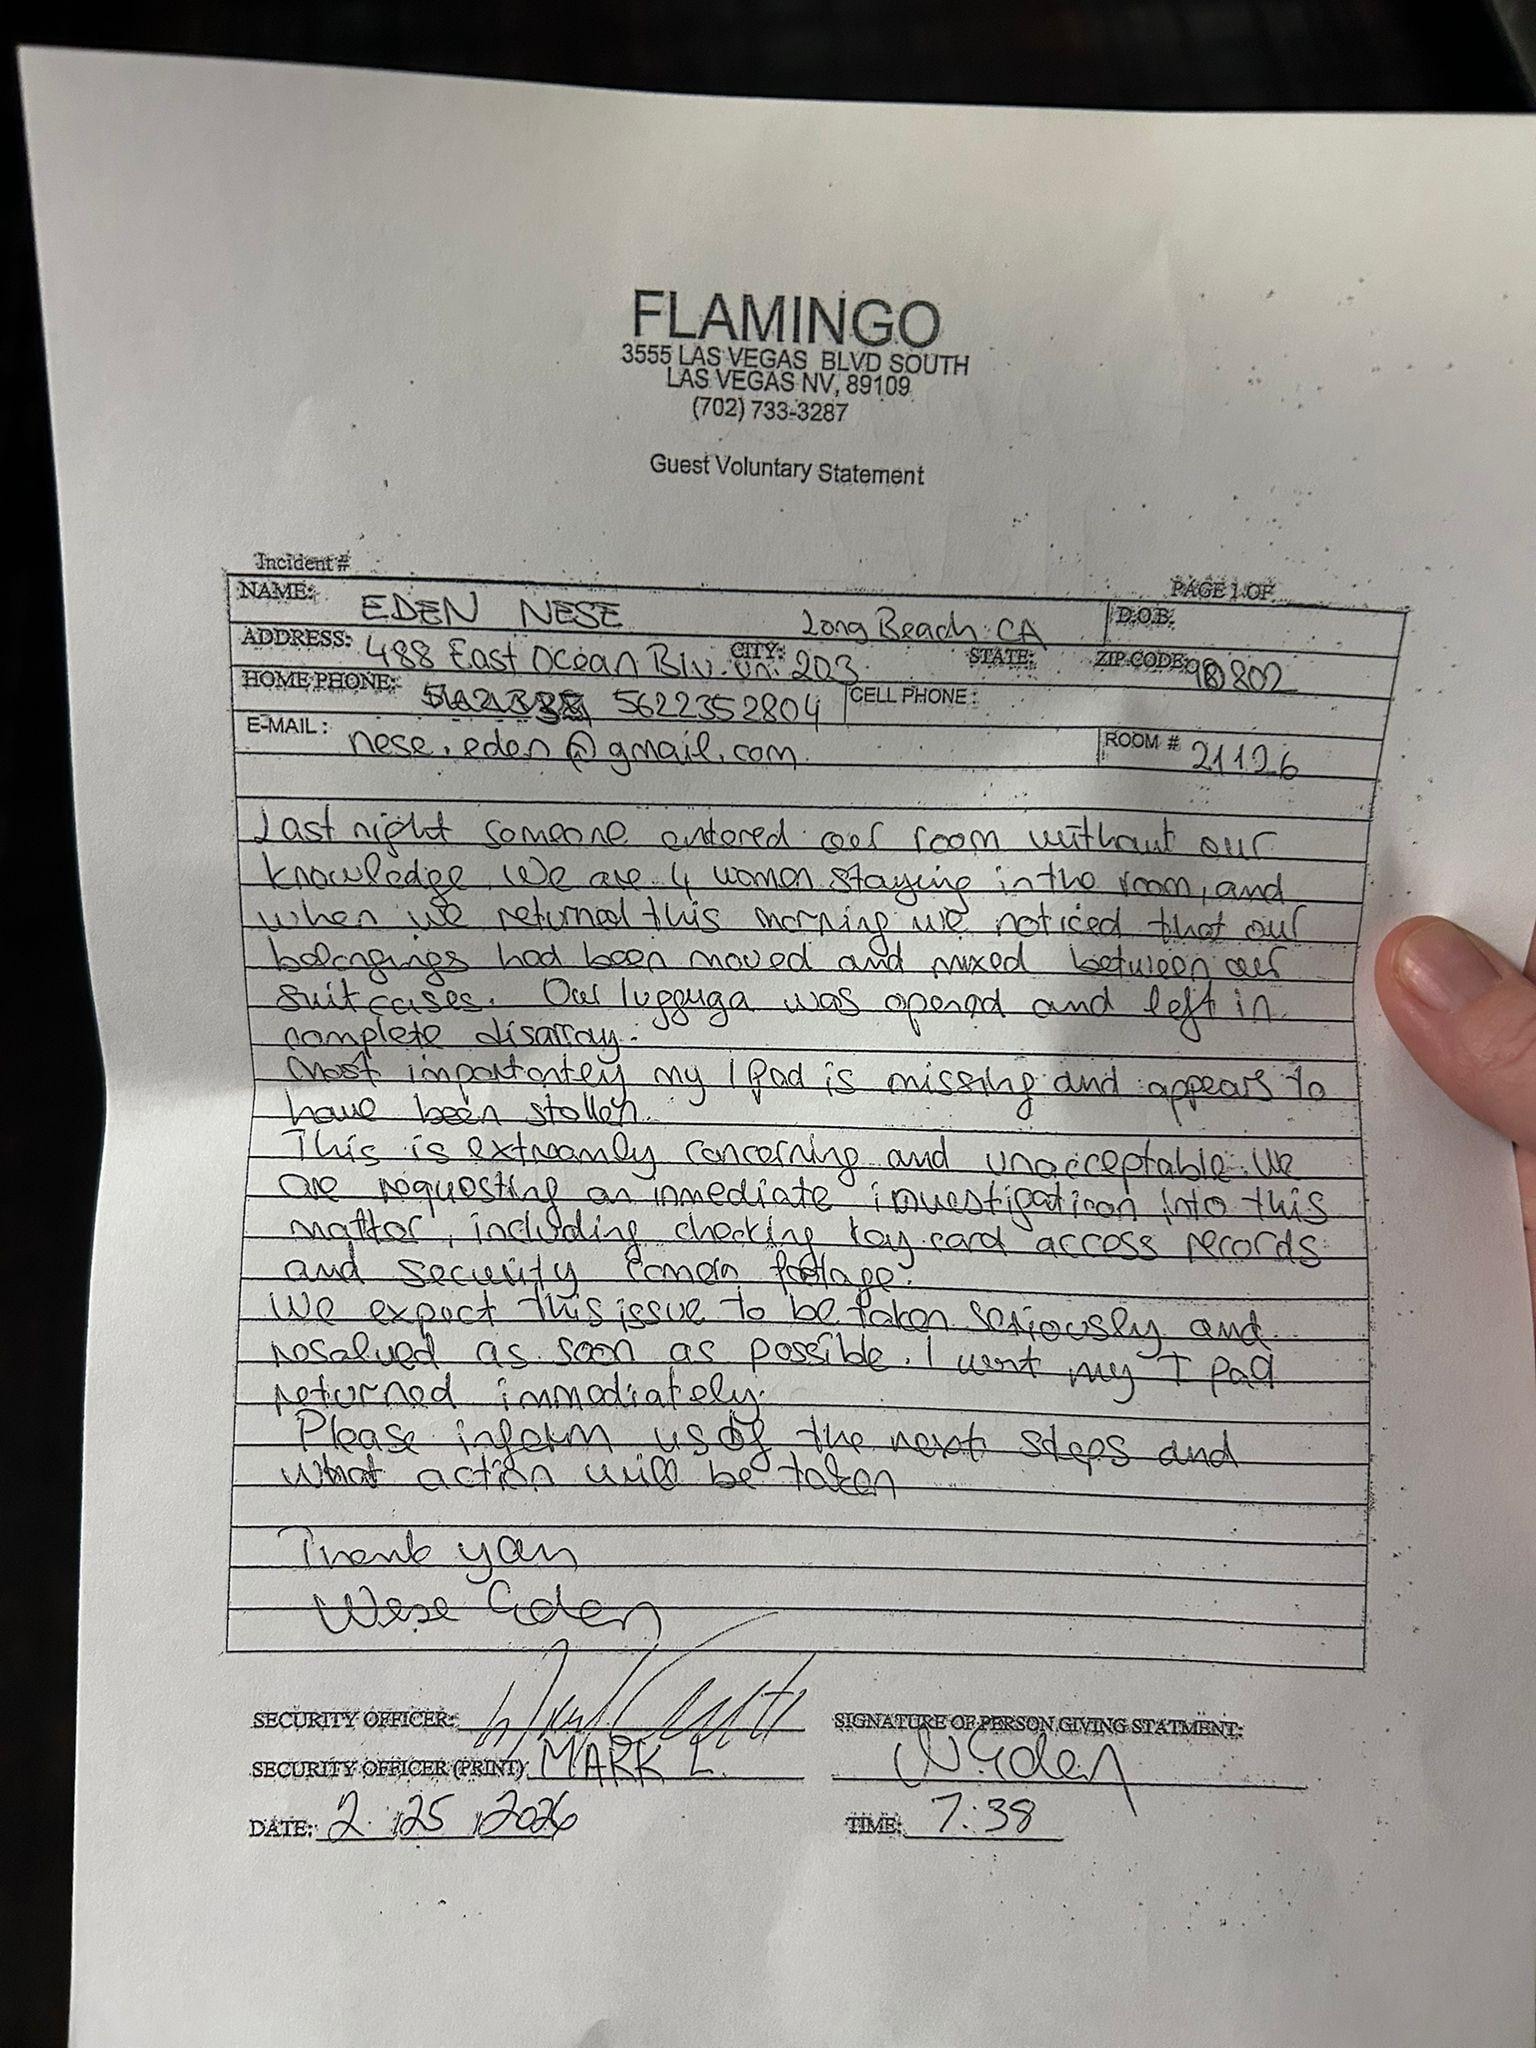 FLAMINGO
3555 LAS VEGAS BLVD SOUTH
LAS VEGAS NV, 89109
(702) 733-3287
Guest Voluntary Statement
Incident #
PAGE 1 OF
NAME: EDEN NESE
D.O.B.
Long Beach CA
ADDRESS: 488 East Ocean Blv. un. 203 CITY: STATE: ZIP CODE: 90802
HOME PHONE: 5622352804 CELL PHONE:
E-MAIL: nese.eden@gmail.com ROOM # 21126
Last night someone entered our room without our
knowledge. We are 4 women staying in the room, and
when we returned this morning we noticed that our
belongings had been moved and mixed between our
suitcases. Our lugguga was opened and left in
complete disarray.
Most importantey my I Pad is missing and appears to
have been stollen.
This is extreamly concerning and unacceptable. We
are requesting an inmediate investigatiion into this
mattor, including checking key card access records
and security camera footage.
We expect this issue to be taken seriously and
resolved as soon as possible. I want my I Pad
returned immediately.
Please inform us of the next steps and
what action will be taken
Thank you
Nese Eden
SECURITY OFFICER:
SIGNATURE OF PERSON GIVING STATMENT:
SECURITY OFFICER (PRINT) MARK L.
N. Eden
DATE: 2/25/2026 TIME: 7:38